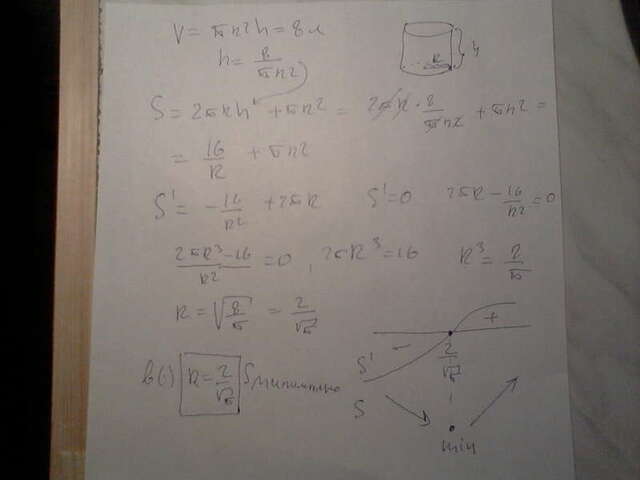 V = πR²h = 8 л
h = 8/(πR²)
R
h
S = 2πRh + πR² = 2πR · 8/(πR²) + πR² =
= 16/R + πR²
S' = -16/R² + 2πR   S' = 0   2πR - 16/R² = 0
(2πR³ - 16)/R² = 0, 2πR³ = 16   R³ = 2/π
R = √(8/π) = 2/√π
S'   -   +
2/√π
в(·) R = 2/√π S минимально
S
min